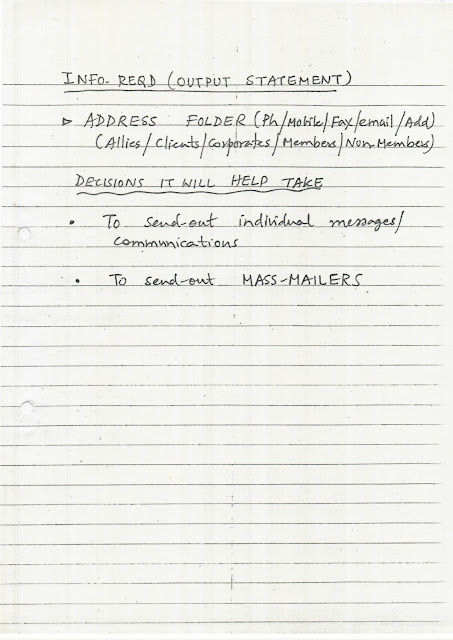 INFO. REQD (OUTPUT STATEMENT)
▷ ADDRESS FOLDER (Ph/Mobile/Fax/email/Add)
(Allies/Clients/Corporates/Members/Non-Members)
DECISIONS IT WILL HELP TAKE
• To send-out individual messages/
communications
• To send-out MASS-MAILERS